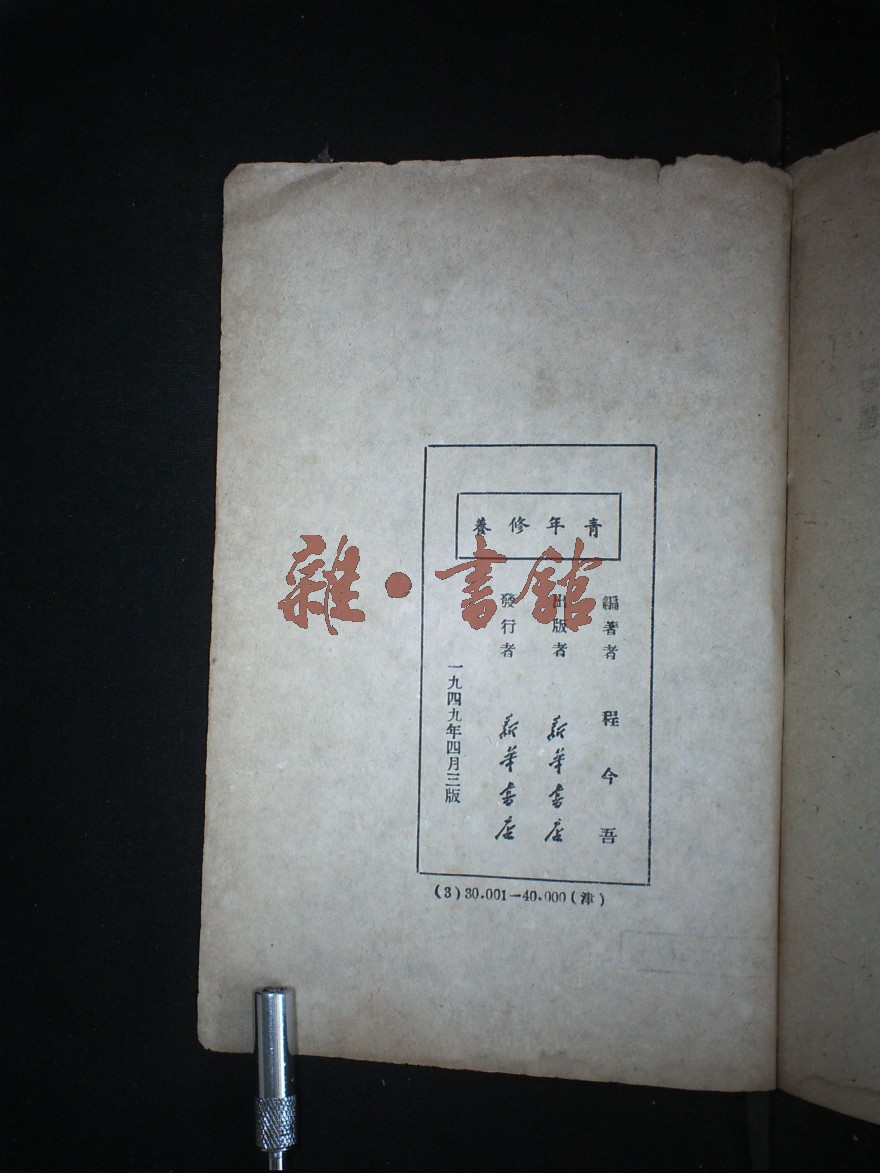 青年修養
編著者 程今吾
出版者 新華書店
發行者 新華書店
一九四九年四月三版
(3)30.001—40.000(津)
雜·書館